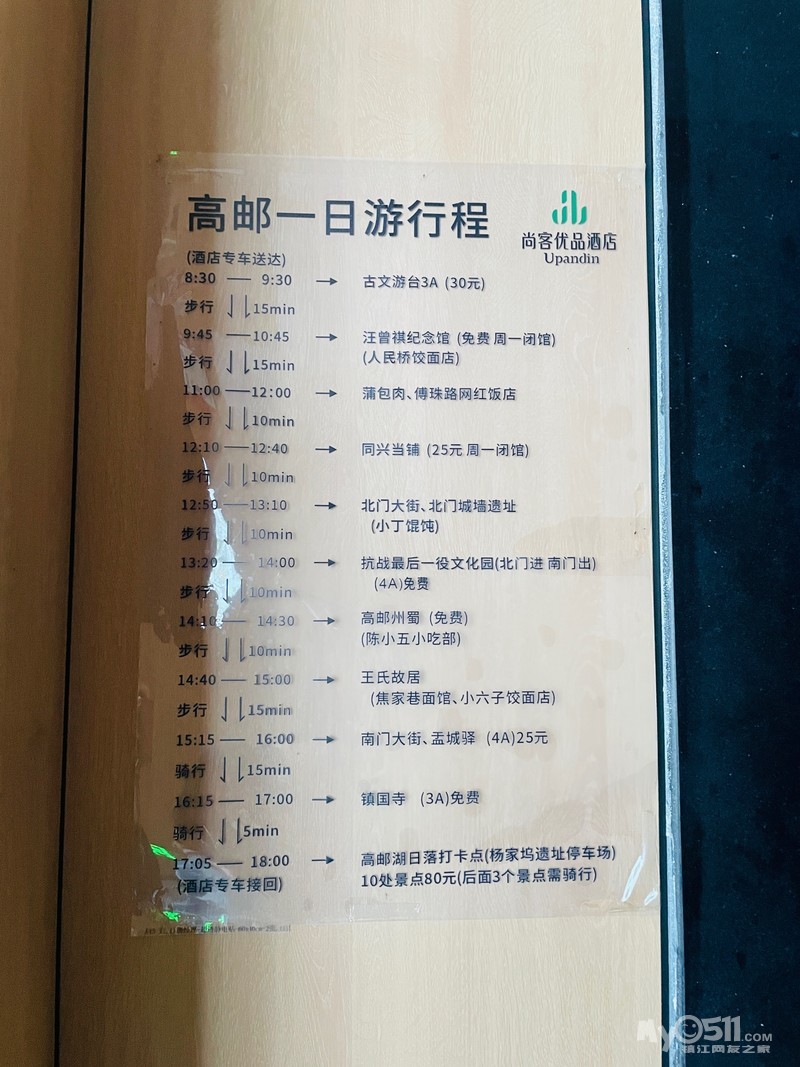 高邮一日游行程
尚客优品酒店
Upandin
(酒店专车送达)
8:30 — 9:30 → 古文游台3A (30元)
步行 15min
9:45 — 10:45 → 汪曾祺纪念馆 (免费 周一闭馆)
(人民桥饺面店)
步行 15min
11:00 — 12:00 → 蒲包肉、傅珠路网红饭店
步行 10min
12:10 — 12:40 → 同兴当铺 (25元 周一闭馆)
步行 10min
12:50 — 13:10 → 北门大街、北门城墙遗址
(小丁馄饨)
步行 10min
13:20 — 14:00 → 抗战最后一役文化园(北门进 南门出)
(4A)免费
步行 10min
14:10 — 14:30 → 高邮州蜀 (免费)
(陈小五小吃部)
步行 10min
14:40 — 15:00 → 王氏故居
(焦家巷面馆、小六子饺面店)
步行 15min
15:15 — 16:00 → 南门大街、盂城驿 (4A)25元
骑行 15min
16:15 — 17:00 → 镇国寺 (3A)免费
骑行 5min
17:05 — 18:00 → 高邮湖日落打卡点(杨家坞遗址停车场)
(酒店专车接回) 10处景点80元(后面3个景点需骑行)
MY0511.COM
镇江网友之家